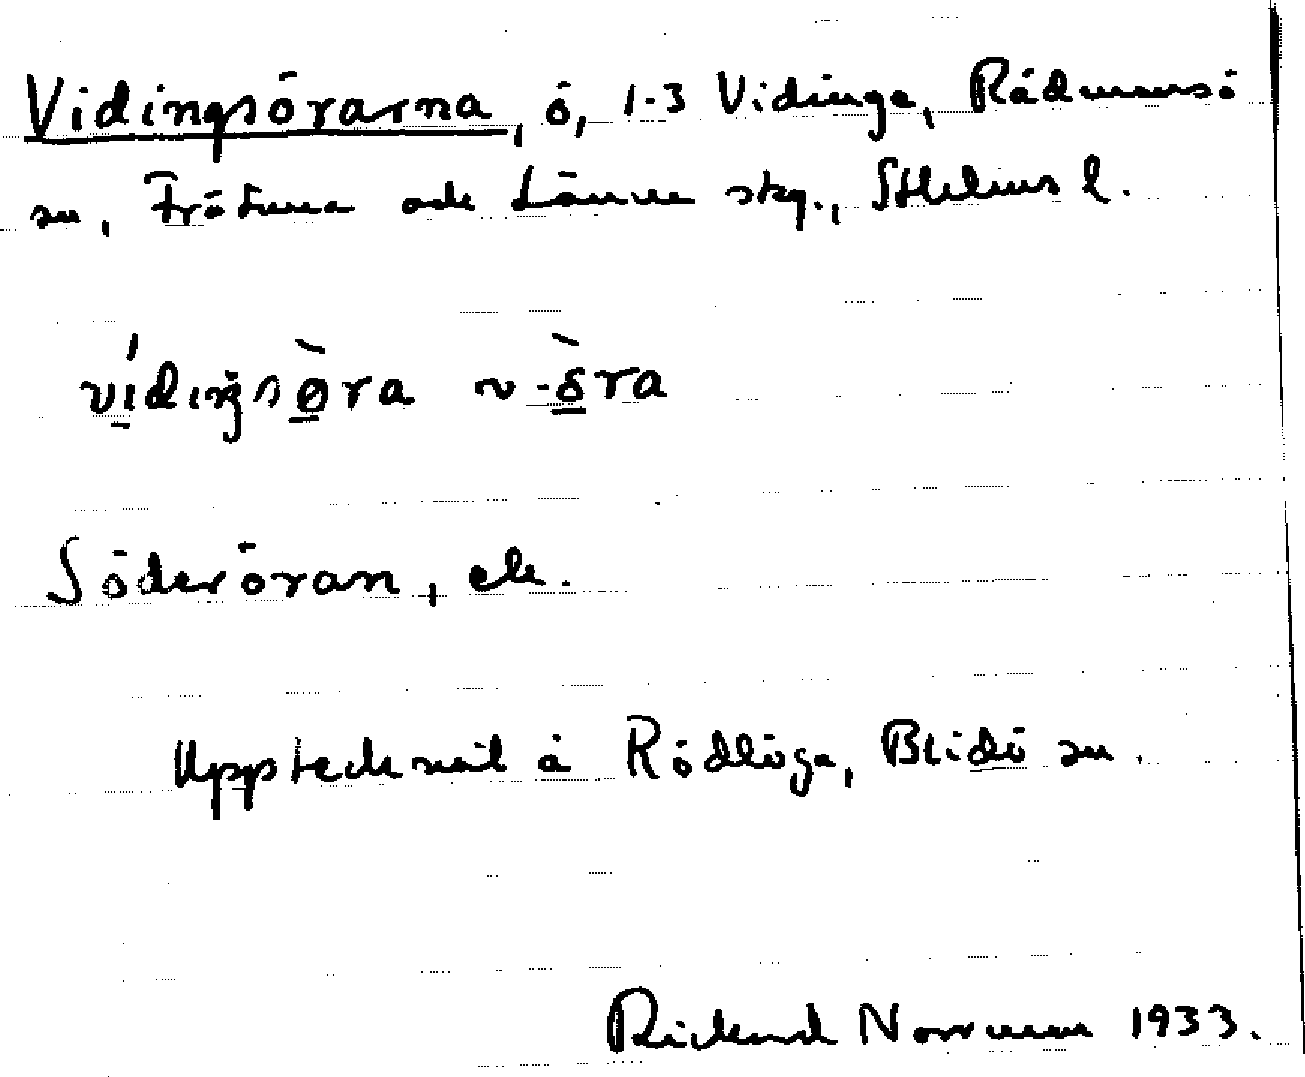 Vidingsörarna, ö, 1-3 Vidinge, Rådmansö
sn, Frötuna och Länna skg., Sthlms l.
vídiŋsø̀ra ~ -ὸ̈ra
Söderöran, etc.
Upptecknat å Rödlöga, Blidö sn.
Rickard Norrman 1933.